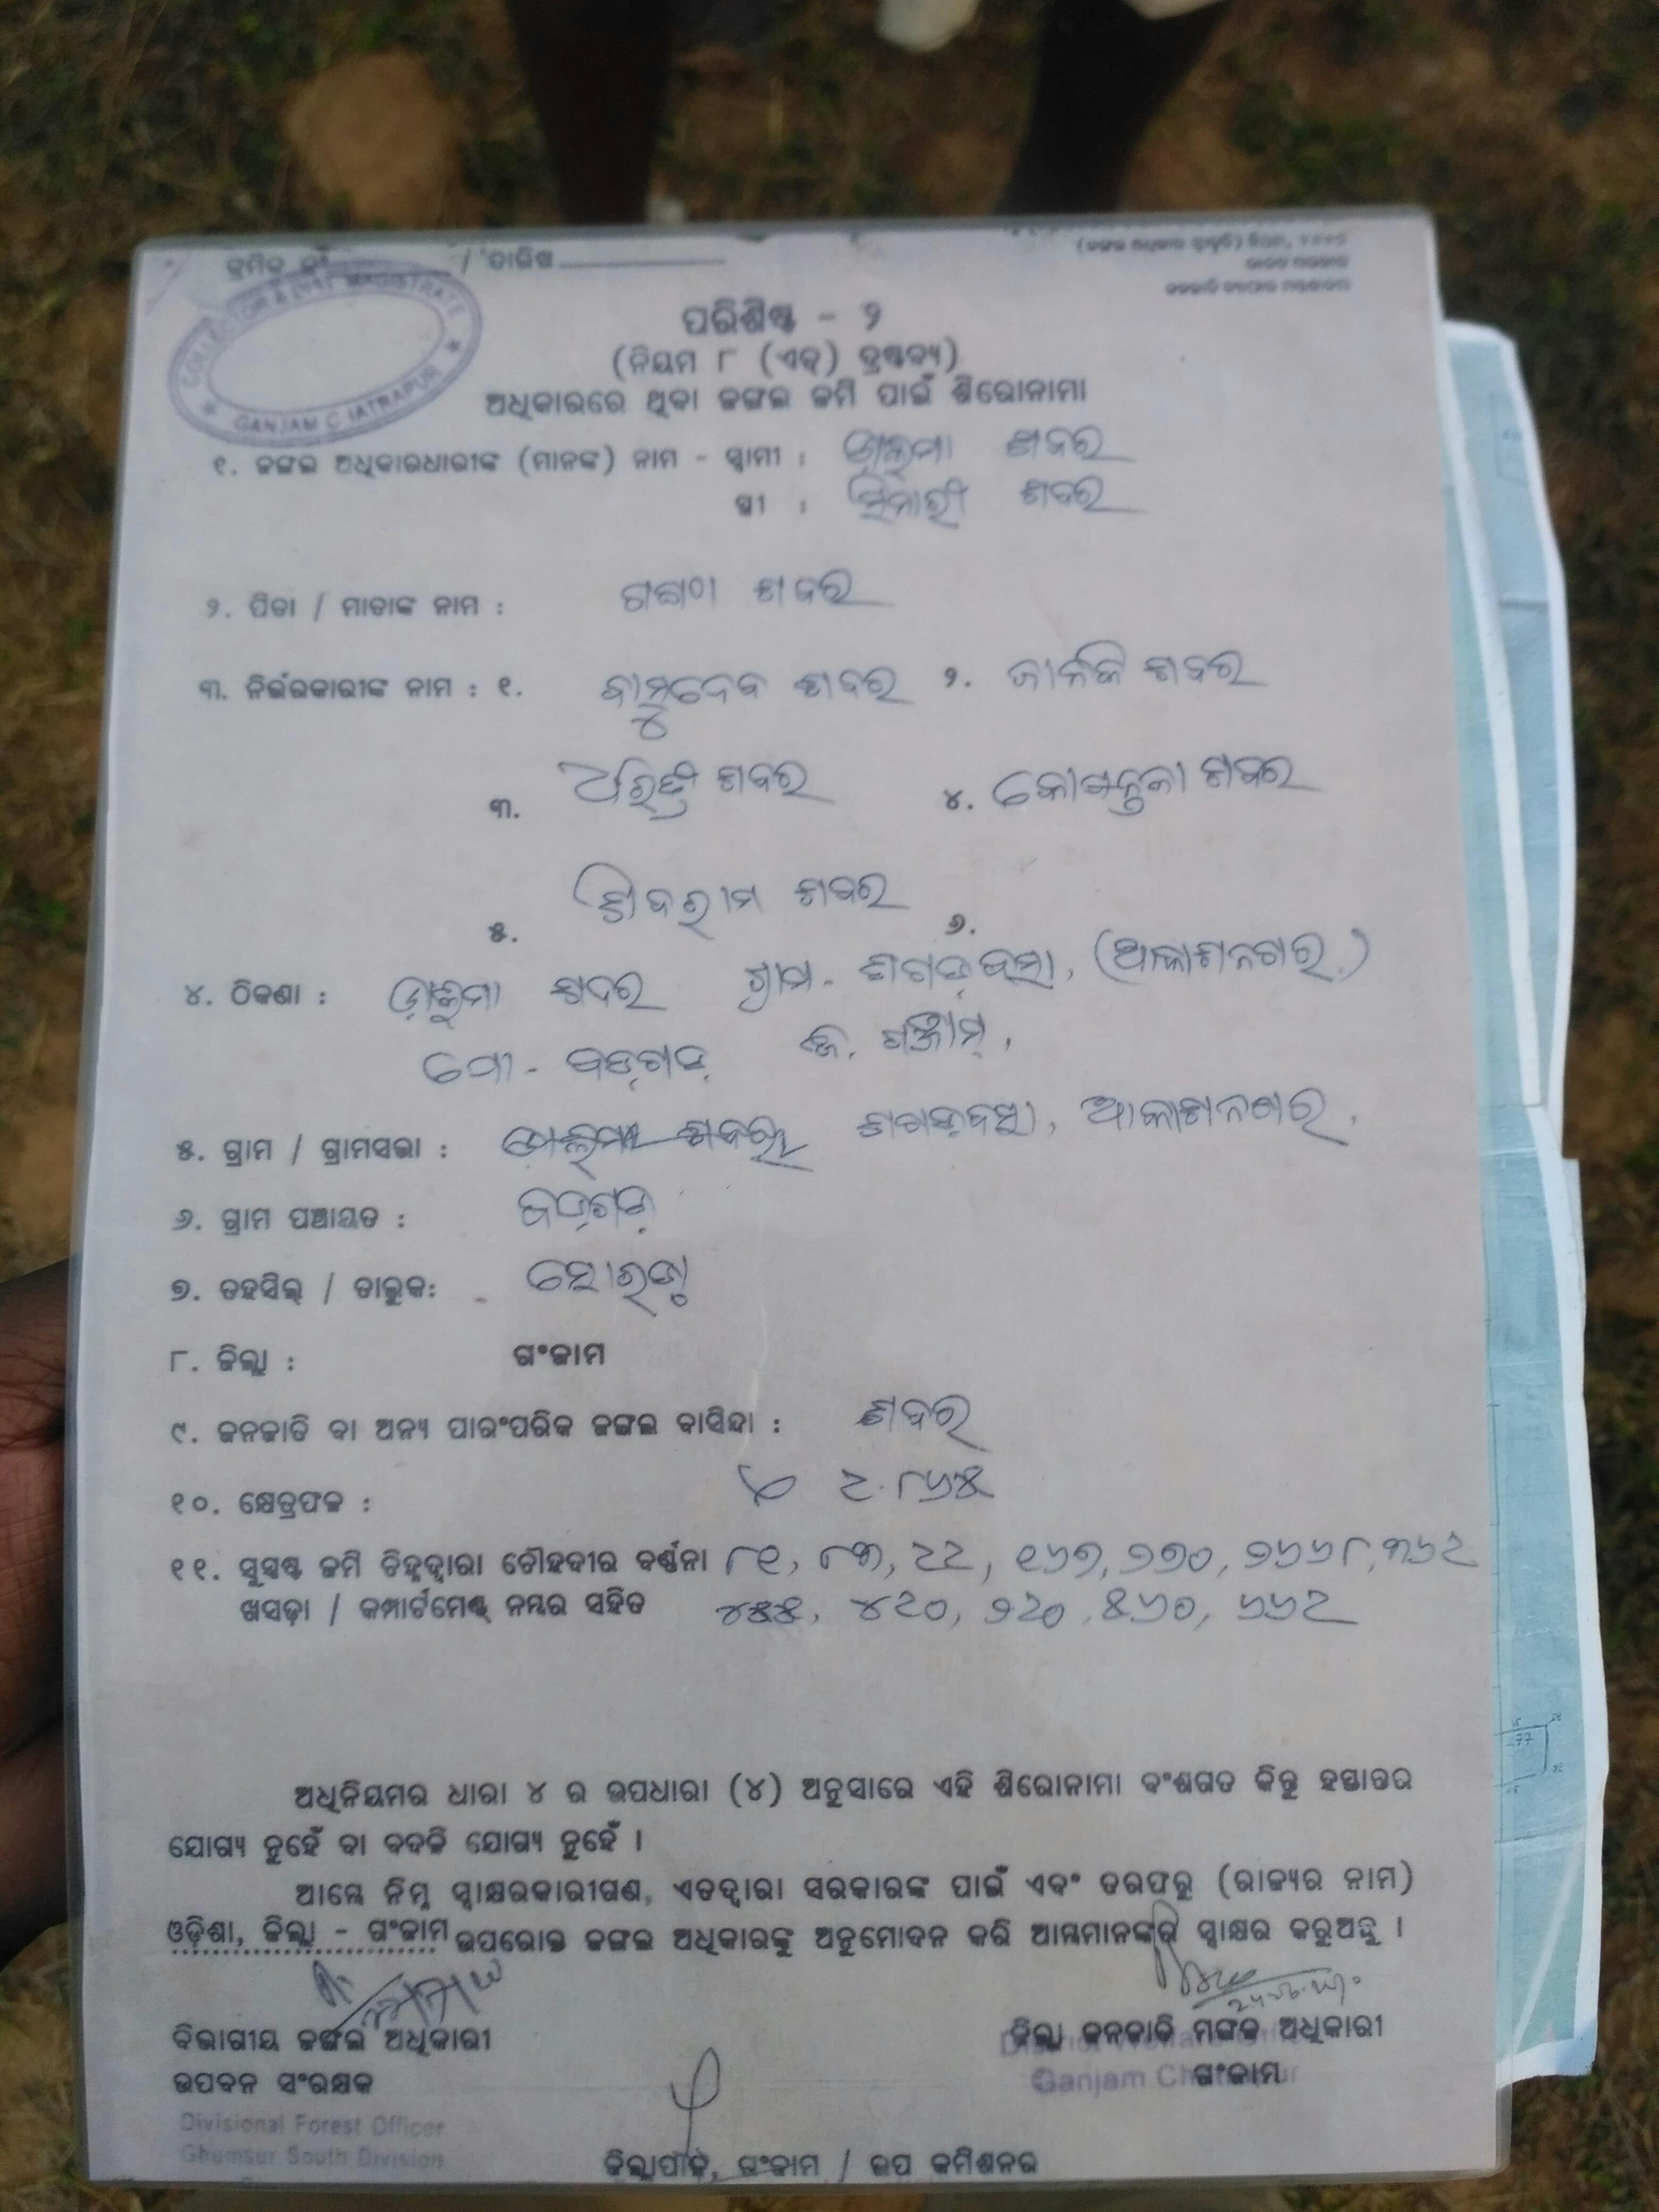 କ୍ରମିକ ନଂ / ତାରିଖ
COLLECTOR & DIST MAGISTRATE
GANJAM CHATRAPUR
ପରିଶିଷ୍ଟ - ୨
(ନିୟମ ୮ (ଏଚ୍) ଦ୍ରଷ୍ଟବ୍ୟ)
ଅଧିକାରରେ ଥିବା ଜଙ୍ଗଲ ଜମି ପାଇଁ ଶିରୋନାମା
୧. ଜଙ୍ଗଲ ଅଧିକାରଧାରୀଙ୍କ (ମାନଙ୍କ) ନାମ - ସ୍ୱାମୀ : ଶବର
ସ୍ତ୍ରୀ : ଶବର
୨. ପିତା / ମାତାଙ୍କ ନାମ : ଶବର
୩. ନିର୍ଭରକାରୀଙ୍କ ନାମ : ୧. ବାସୁଦେବ ଶବର ୨. ଜାନକି ଶବର
୩. ଶବର ୪. ଶବର
୫. ଶିବରାମ ଶବର ୬.
୪. ଠିକଣା : ଶବର ଗ୍ରାମ- ଶଗଡ଼ବସା, (ଆକାଶନଗର)
ପୋ - ବଡ଼ଗଡ଼ ଜି. ଗଞ୍ଜାମ,
୫. ଗ୍ରାମ / ଗ୍ରାମସଭା : ଶଗଡ଼ବସା, ଆକାଶନଗର,
୬. ଗ୍ରାମ ପଞ୍ଚାୟତ : ବଡ଼ଗଡ଼
୭. ତହସିଲ୍ / ତାଲୁକ: - ସୋରଡ଼ା
୮. ଜିଲ୍ଲା : ଗଂଜାମ
୯. ଜନଜାତି ବା ଅନ୍ୟ ପାରଂପରିକ ଜଙ୍ଗଲ ବାସିନ୍ଦା : ଶବର
୧୦. କ୍ଷେତ୍ରଫଳ : ୨.୮୬୫
୧୧. ସୁସ୍ପଷ୍ଟ ଜମି ଚିହ୍ନଦ୍ୱାରା ଚୌହଦୀର ବର୍ଣ୍ଣନା ୮୧, ୮୩, ୨୨, ୧୬୭, ୨୭୦, ୨୬୬୮, ୩୬୨
ଖସଡ଼ା / କମ୍ପାର୍ଟମେଣ୍ଟ୍ ନମ୍ବର ସହିତ ୪୫୫, ୪୨୦, ୨୨୦, ୫୬୦, ୬୬୨
ଅଧିନିୟମର ଧାରା ୪ ର ଉପଧାରା (୪) ଅନୁସାରେ ଏହି ଶିରୋନାମା ବଂଶଗତ କିନ୍ତୁ ହସ୍ତାନ୍ତର
ଯୋଗ୍ୟ ନୁହେଁ ବା ବଦଳି ଯୋଗ୍ୟ ନୁହେଁ ।
ଆମ୍ଭେ ନିମ୍ନ ସ୍ୱାକ୍ଷରକାରୀଗଣ, ଏତଦ୍ୱାରା ସରକାରଙ୍କ ପାଇଁ ଏବଂ ତରଫରୁ (ରାଜ୍ୟର ନାମ)
ଓଡ଼ିଶା, ଜିଲ୍ଲା - ଗଂଜାମ ଉପରୋକ୍ତ ଜଙ୍ଗଲ ଅଧିକାରଙ୍କୁ ଅନୁମୋଦନ କରି ଆମ୍ଭମାନଙ୍କର ସ୍ୱାକ୍ଷର କରୁଅଛୁ ।
ବିଭାଗୀୟ ଜଙ୍ଗଲ ଅଧିକାରୀ
ଉପବନ ସଂରକ୍ଷକ
Divisional Forest Officer
Ghumsur South Division
ଜିଲ୍ଲା ଜନଜାତି ମଙ୍ଗଳ ଅଧିକାରୀ
ଗଂଜାମ
Ganjam
ଜିଲ୍ଲାପାଳ, ଗଂଜାମ / ଉପ କମିଶନର